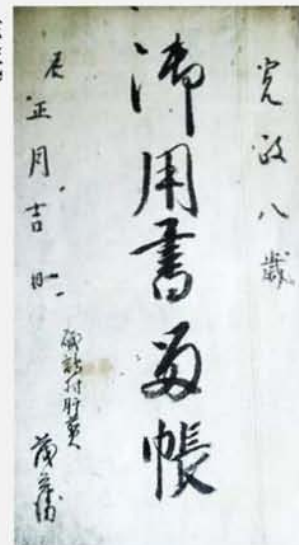 寛政八歳
御用書留帳
辰正月吉日
村肝煎